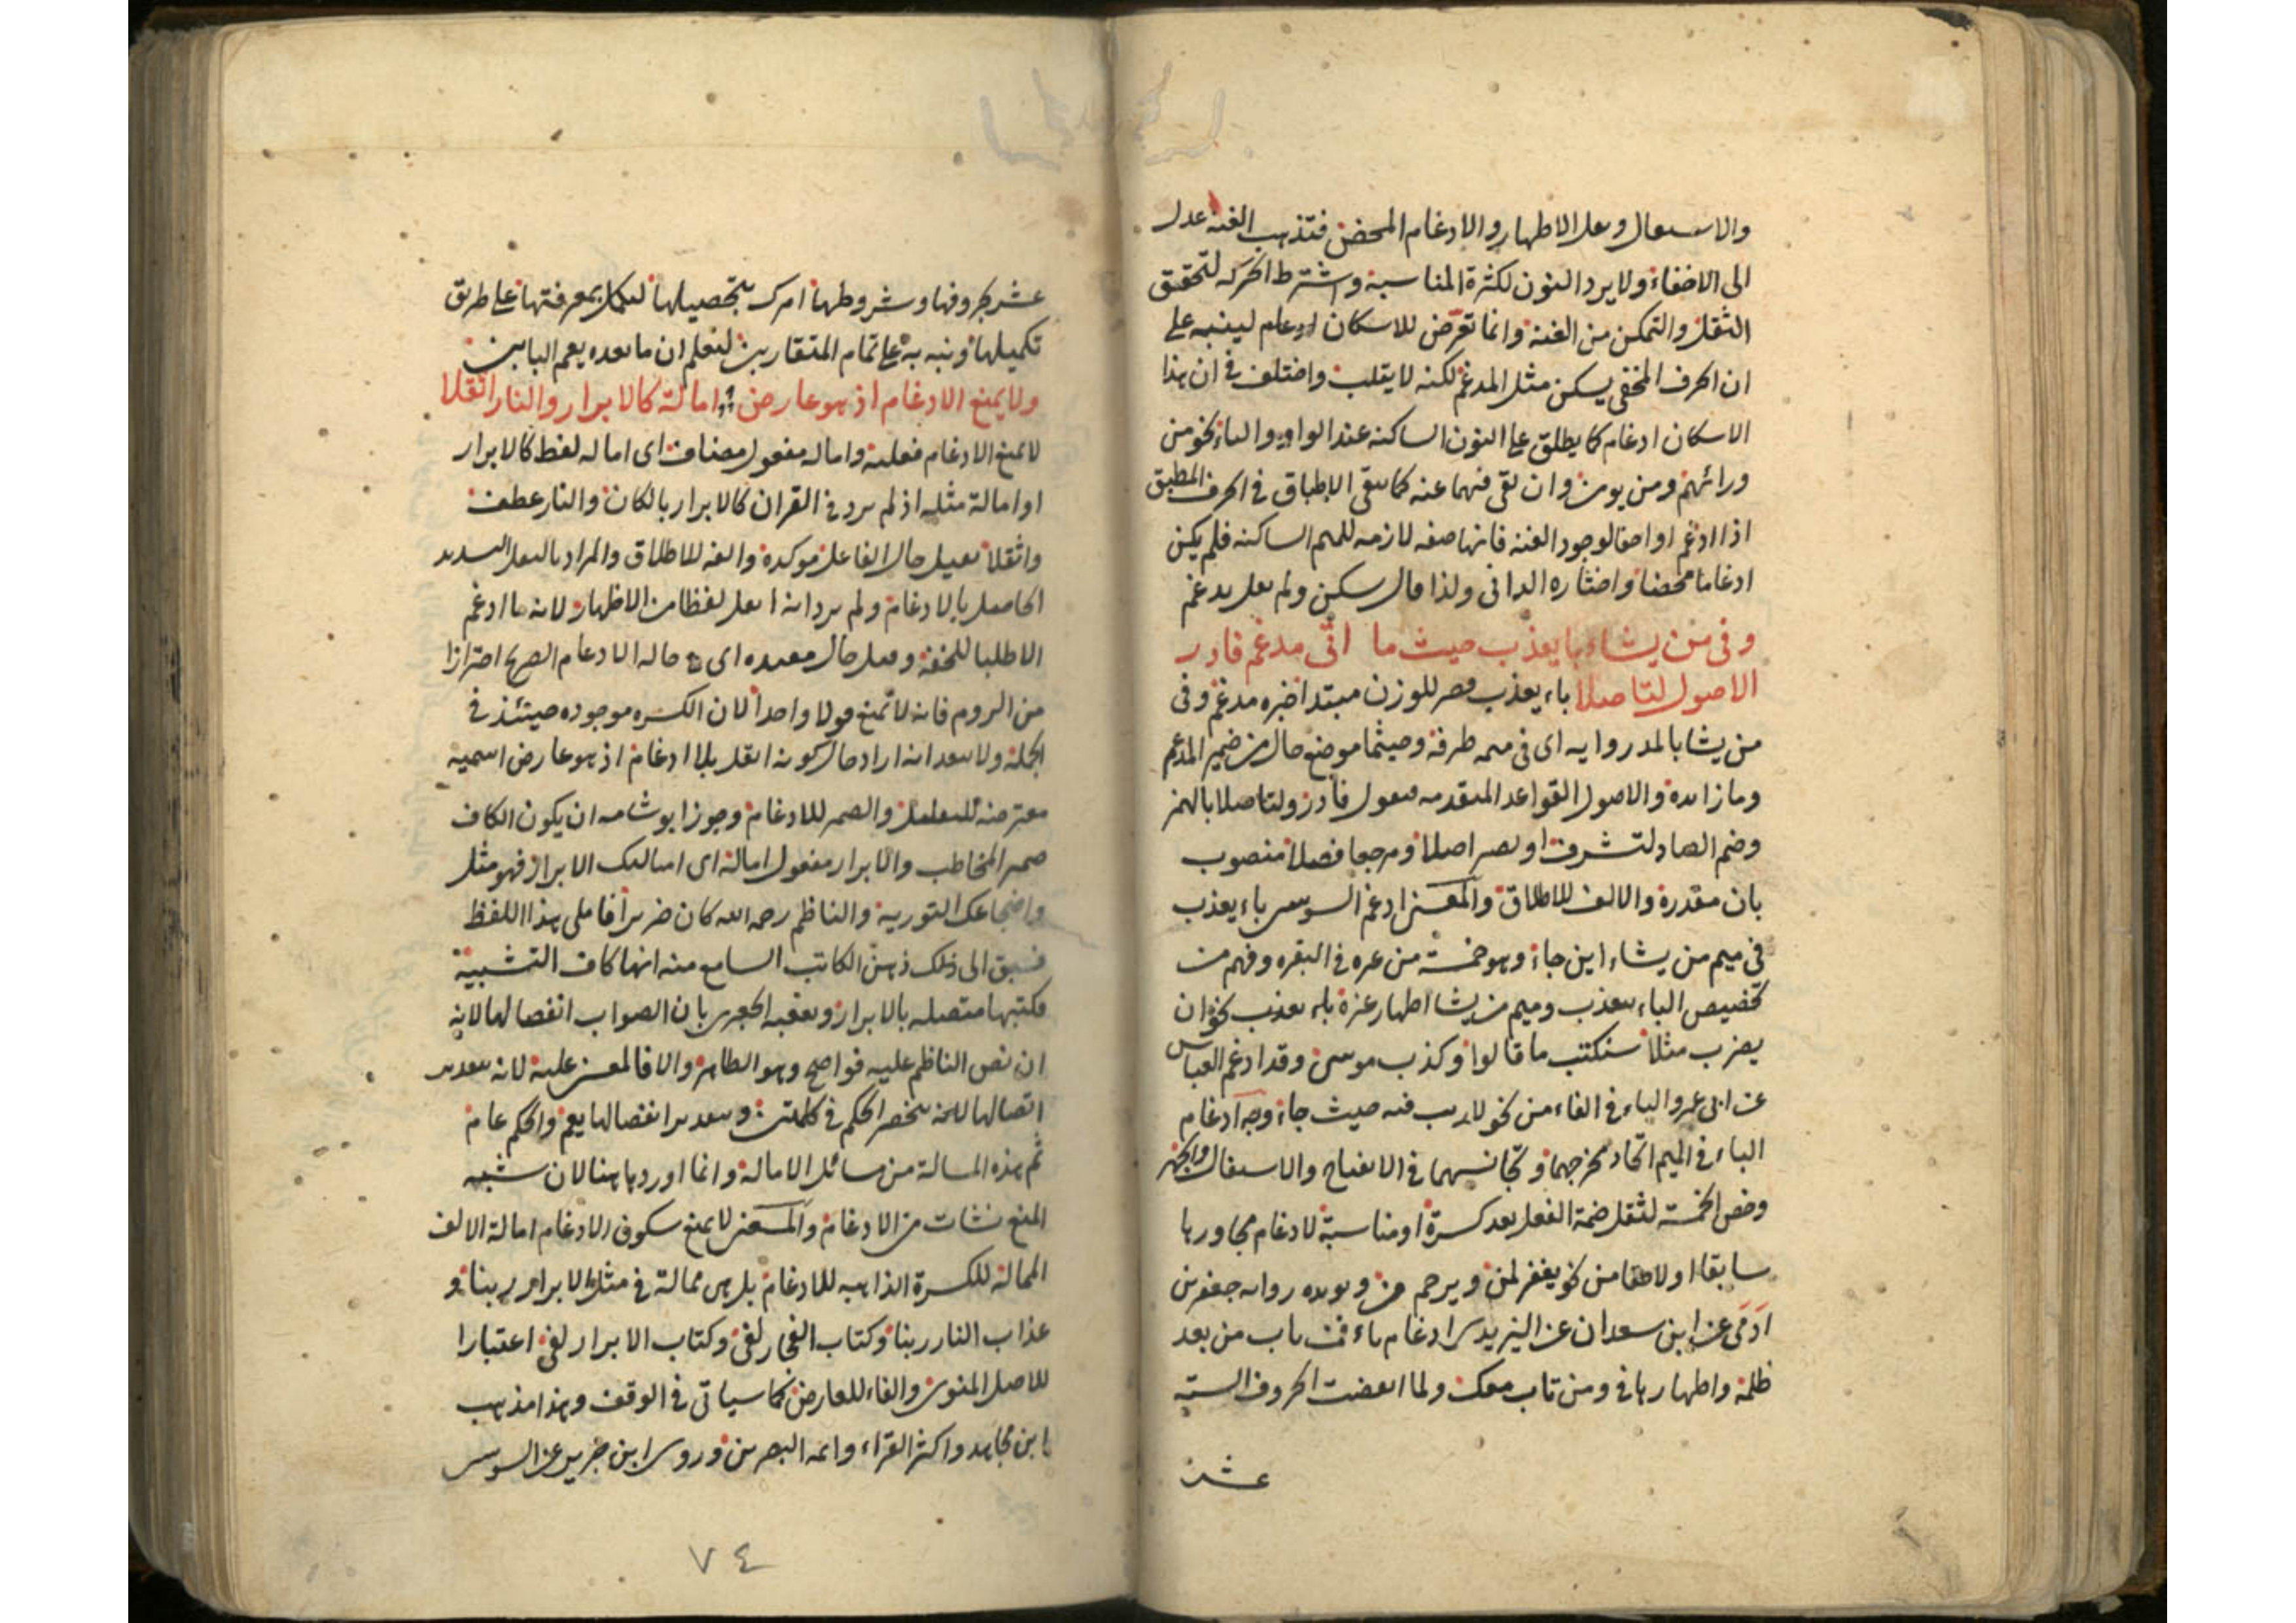 والاستفال وثقل الاظهار والادغام المحض فتذهب الغنة عدل
الى الاخفاء ولا يرد النون لكثرة المناسبة واشترط الحركة لتحقق
الثقل والتمكن من الغنة وانما تعرض للاسكان ليـنبه على
ان الحرف المخفى يسكن مثل المدغم لكنه لا يقلب واختلف فى ان هذا
الاسكان ادغام كما يطلق على النون الساكنة عند الواو والياء نحو من
ورائهم ومن يومن وان بقى فيهما غنة كما يبقى الاطباق فى الحرف المطبق
اذا ادغم او اخفا لوجود الغنة فانها صفة لازمة للميم الساكنة فلم يكن
ادغاما محضا واختاره الدانى ولذا قال سكن ولم يقل يدغم
وفى من يشاء با يعذب حيث ما اتى مدغم فادر
الاصول لتاصلا باء يعذب قصر للوزن مبتدا خبره مدغم وفى
من يشا بالمد رواية اى فى ميمه ظرفه وحيثما موضع حال من ضمير المدغم
وما زائدة والاصول القواعد المتقدمة مفعول فادر ولتاصلا بالهمز
وضم الصاد لتشرف او تصير اصلا ومرجعا فصلا منصوب
بان مقدرة والالف للاطلاق والمعنى ادغم السوسى باء يعذب
فى ميم من يشاء اين جاء وهو خمسة من غيره فى البقرة وفهم من
تخصيص الباء بيعذب وميم من يشا اظهار غيره باء يعذب نحو ان
يضرب مثلا سنكتب ما قالوا وكذب موسى وقد ادغم العباس
عن ابى عمرو الباء فى الفاء من نحو لا ريب فيه حيث جاء وجه ادغام
الباء فى الميم اتحاد مخرجهما وتجانسهما فى الانفتاح والاستفال والجهر
وخص الخمسة لثقل ضمة الفعل بعد كسرة او مناسبة لادغام مجاورها
سابقا او لاحقا من نحو يغفر لمن ويرحم من ويؤيده رواية جعفر بن
آدمى عن ابن سعدان عن اليزيدى ادغام باء فمن تاب من بعد
ظلمه واظهارها فى ومن تاب معك ولما انقضت الحروف الستة
عشر
عشر بحروفها وشروطها امرك بتحصيلها لتعمل بمعرفتها على طريق
تكميلها ونبه به على تمام المتقاربين لنعلم ان ما بعده يعم البابين
ولا يمنع الادغام اذ هو عارض امالة كالابرار والنار اثقلا
لا يمنع الادغام فعلية وامالة مفعول مضاف اى امالة لفظ كالابرار
او امالة مثله اذ لم يرد فى القران كالابرار بالكاف والنار عطف
واثقلا ثقيل حال الفاعل موكدة والفه للاطلاق والمراد بالثقل التشديد
الحاصل بالادغام ولم يرد انه اثقل لفظا من الاظهار لانه ما ادغم
الا طلبا للخفة وقيل حال مقيدة اى فى حالة الادغام الصريح احترازا
من الروم فانه لا تمنع قولا واحدا لان الكسرة موجودة حينئذ فى
الجملة ولا يبعد انه اراد حال كونه اثقل بلا ادغام اذ هو عارض اسمية
معترضة للتعليل والضمير للادغام وجوز ابو شامة ان يكون الكاف
ضمير المخاطب والابرار مفعول امالة اى امالتك الابرار فهو مثل
واضجاعك التورية والناظم رحمه الله كان ضريرا فاملى هذا اللفظ
فسبق الى ذلك ذهن الكاتب السامع منه انها كاف التشبيه
فكتبها متصلة بالابرار وتعقبه الجعبرى بان الصواب اتصالها لانه
ان نص الناظم عليه فواضح وهو الظاهر والا فالمعنى عليه لانه بتقدير
اتصالها للضمير ينحصر الحكم فى كلمتين وبتقدير انفصالها يعم والحكم عام
ثم هذه المسالة من مسائل الامالة وانما اوردها هنا لان شبه
المنع نشات من الادغام والمعنى لا يمنع سكون الادغام امالة الالف
الممالة للكسرة الذاهبة للادغام بل هى ممالة فى مثل الابرار ربنا و
عذاب النار ربنا وكتاب الفجار لفى وكتاب الابرار لفى اعتبارا
للاصل المنوى والغاء للعارض كما سياتى فى الوقف وهذا مذهب
ابن مجاهد واكثر القراء وائمة البصريين وروى ابن جرير عن السوسى
٧٤